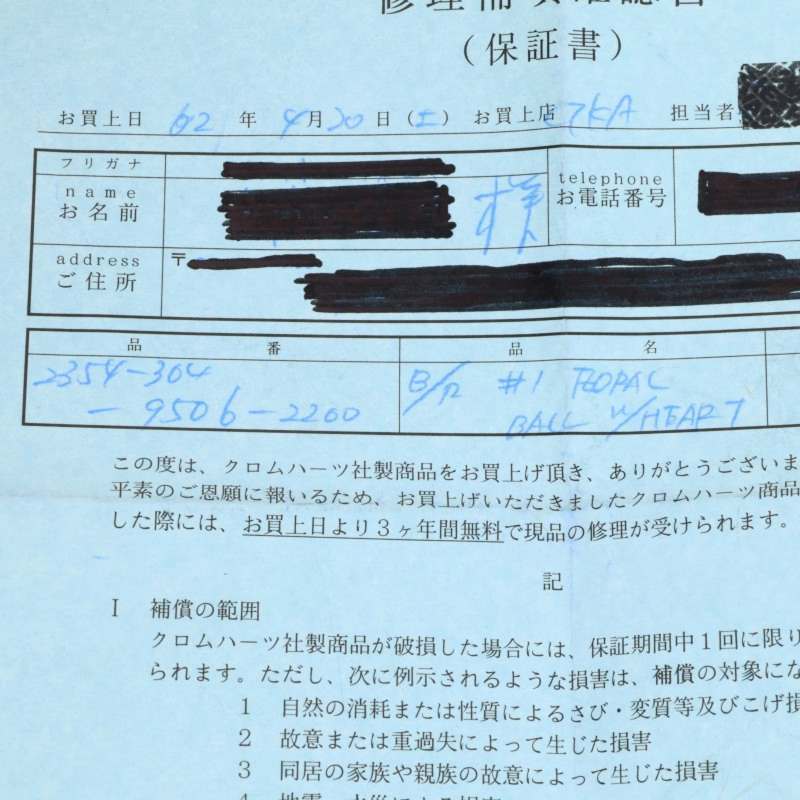 修理補填確認書
(保証書)
お買上日 02 年 4月20日(土) お買上店 担当者
フリガナ
name telephone
お名前 様 お電話番号
address 〒
ご住所
品番 品名
2354-304 B/R #1 FLORAL
-9506-2200 BALL W/HEART
この度は、クロムハーツ社製商品をお買上げ頂き、ありがとうございま
平素のご恩顧に報いるため、お買上げいただきましたクロムハーツ商品
した際には、お買上日より3ヶ年間無料で現品の修理が受けられます。
記
I 補償の範囲
クロムハーツ社製商品が破損した場合には、保証期間中1回に限り
られます。ただし、次に例示されるような損害は、補償の対象にな
1 自然の消耗または性質によるさび・変質等及びこげ損
2 故意または重過失によって生じた損害
3 同居の家族や親族の故意によって生じた損害